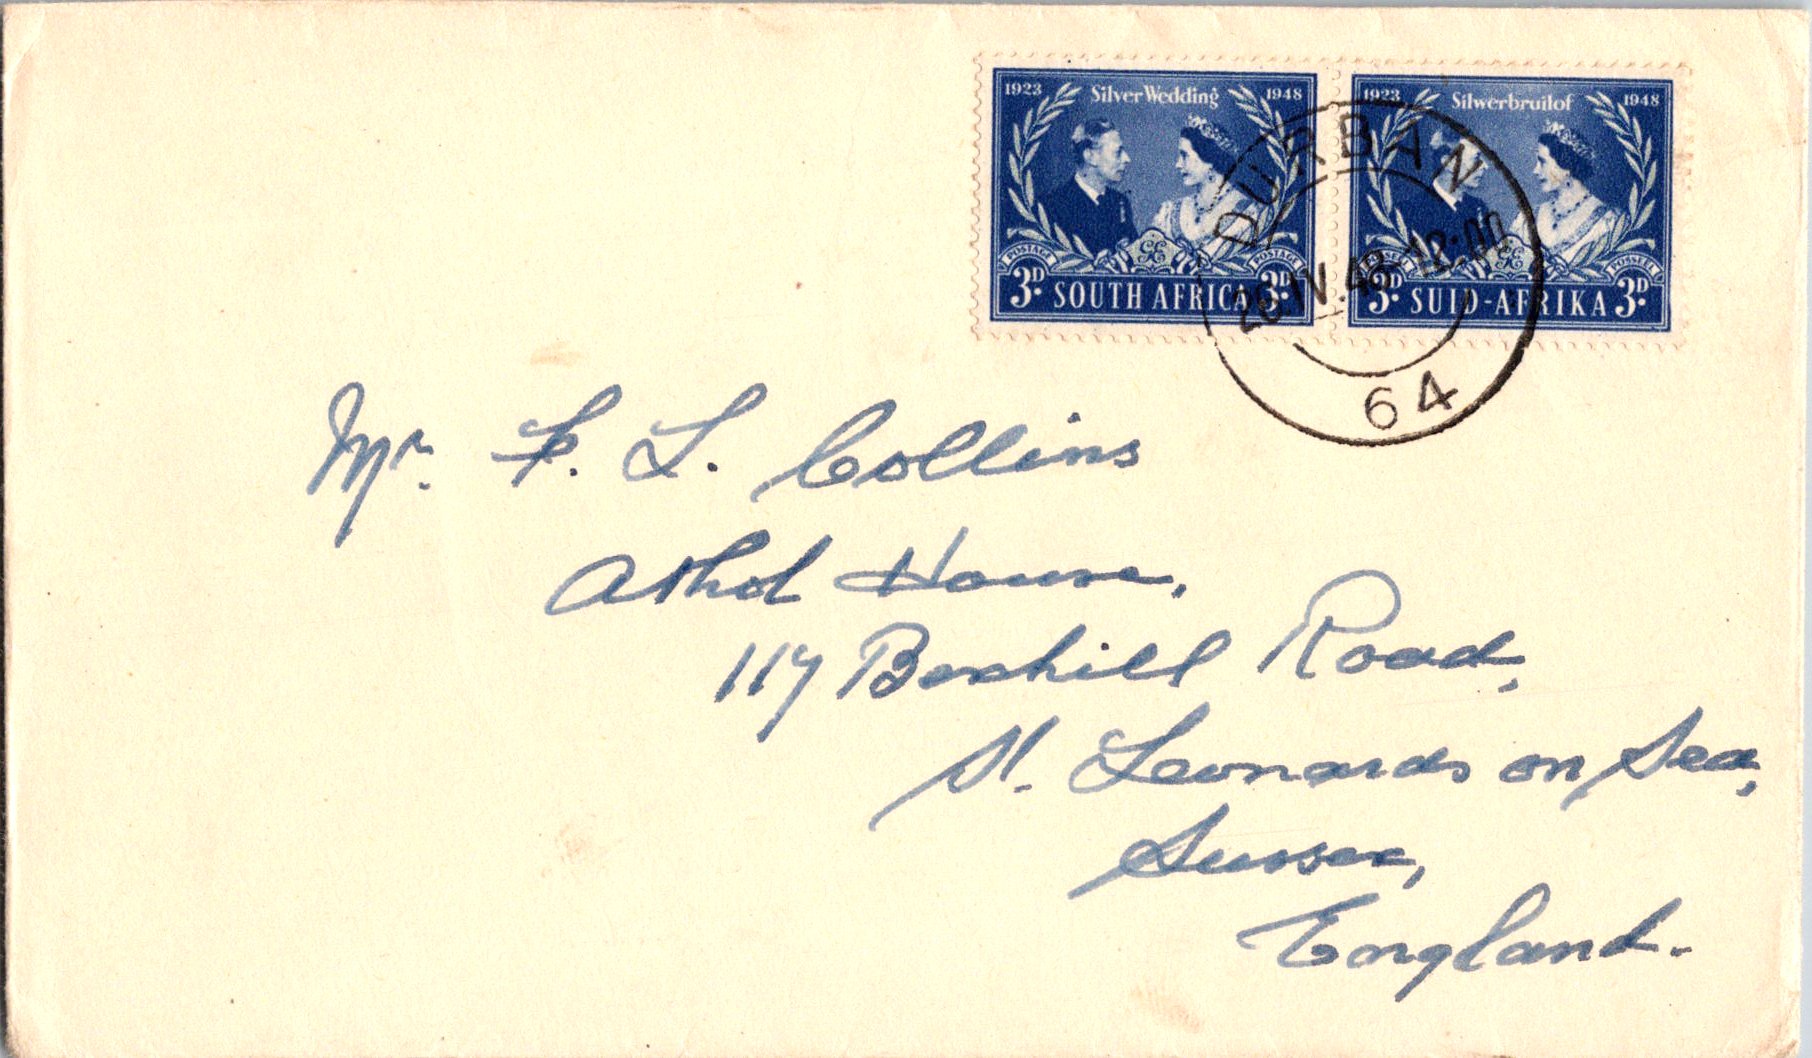 1923 Silver Wedding 1948
POSTAGE POSTAGE
3D SOUTH AFRICA 3D
1923 Silwerbruilof 1948
POSSEËL POSSEËL
3D SUID-AFRIKA 3D
DURBAN
26.IV.48-12:00
64
Mr. F. L. Collins
Athol House,
117 Bexhill Road,
St. Leonards on Sea,
Sussex,
England.